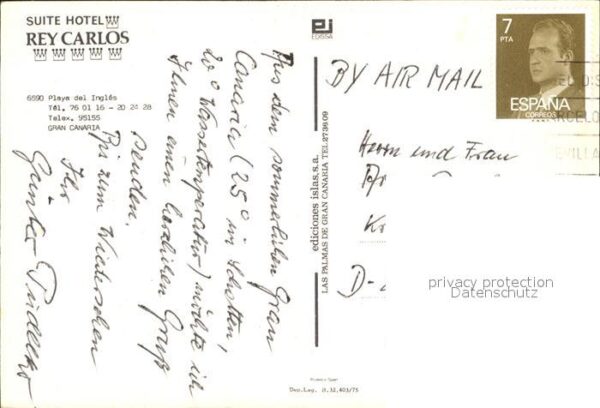 SUITE HOTEL
REY CARLOS
6590 Playa del Inglés
Tél. 76 01 16 - 20 24 28
Telex. 95155
GRAN CANARIA
Aus dem sommerlichen Gran
Canaria (25° im Schatten,
20° Wassertemperatur) möchte ich
Ihnen einen herzlichen Gruß
senden.
Bis zum Wiedersehen
Ihr
Günter
EDISSA
ediciones islas, s.a.
LAS PALMAS DE GRAN CANARIA TEL. 273609
Printed in Spain
Dep. Leg. B. 32.403/75
7
PTA
ESPAÑA
CORREOS
BY AIR MAIL
Herrn und Frau
D-
privacy protection
Datenschutz